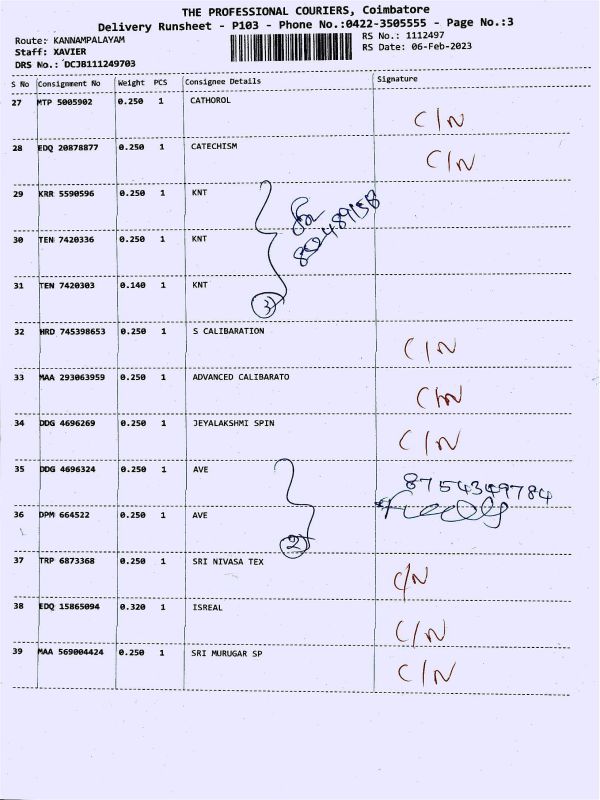 THE PROFESSIONAL COURIERS, Coimbatore
Delivery Runsheet - P103 - Phone No.:0422-3505555 - Page No.:3
Route: KANNAMPALAYAM RS No.: 1112497
Staff: XAVIER RS Date: 06-Feb-2023
DRS No.: DCJB111249703
S No Consignment No Weight PCS Consignee Details Signature
27 MTP 5005902 0.250 1 CATHOROL C/N
28 EDQ 20878877 0.250 1 CATECHISM C/N
29 KRR 5590596 0.250 1 KNT
30 TEN 7420336 0.250 1 KNT
31 TEN 7420303 0.140 1 KNT
3
32 HRD 745398653 0.250 1 S CALIBARATION C/N
33 MAA 293063959 0.250 1 ADVANCED CALIBARATO C/N
34 DDG 4696269 0.250 1 JEYALAKSHMI SPIN C/N
35 DDG 4696324 0.250 1 AVE 8754349784
36 DPM 664522 0.250 1 AVE
2
37 TRP 6873368 0.250 1 SRI NIVASA TEX C/N
38 EDQ 15865094 0.320 1 ISREAL C/N
39 MAA 569004424 0.250 1 SRI MURUGAR SP C/N